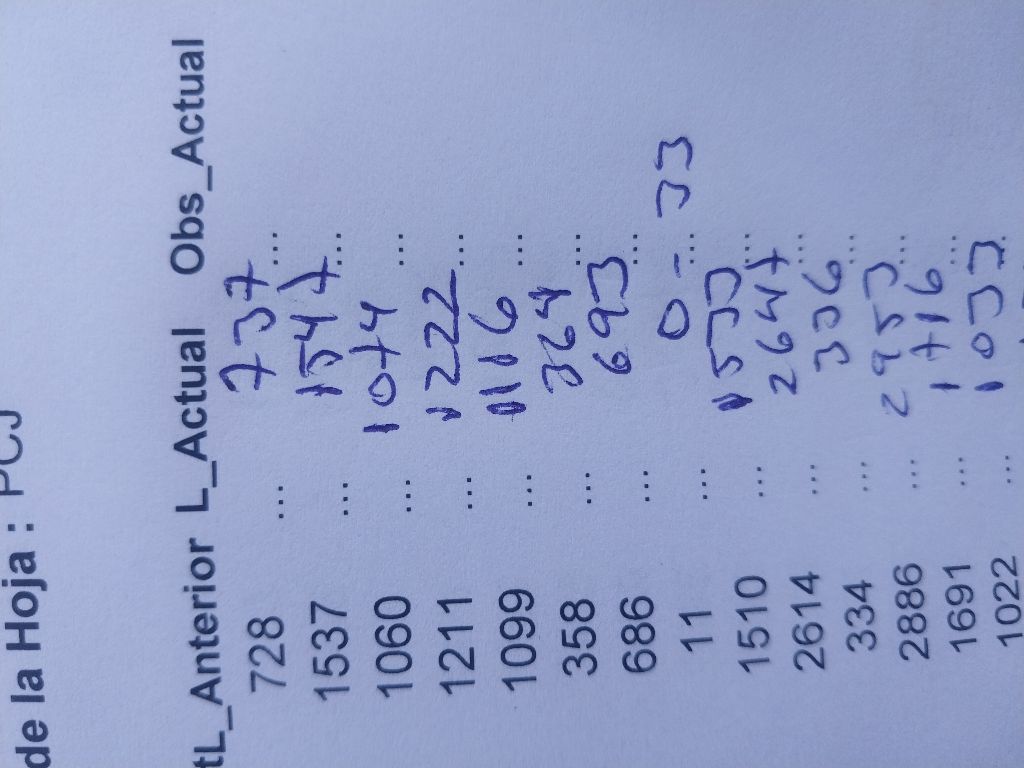 de la Hoja : PCJ
tL_Anterior L_Actual Obs_Actual
728 ... 737 ...
1537 ... 1547 ...
1060 ... 1074 ...
1211 ... 1222 ...
1099 ... 1116 ...
358 ... 364 ...
686 ... 693 ...
11 ... 0 - ... 33
1510 ... 1533 ...
2614 ... 2647 ...
334 ... 336 ...
2886 ... 2953 ...
1691 ... 1716 ...
1022 ... 1033 ...